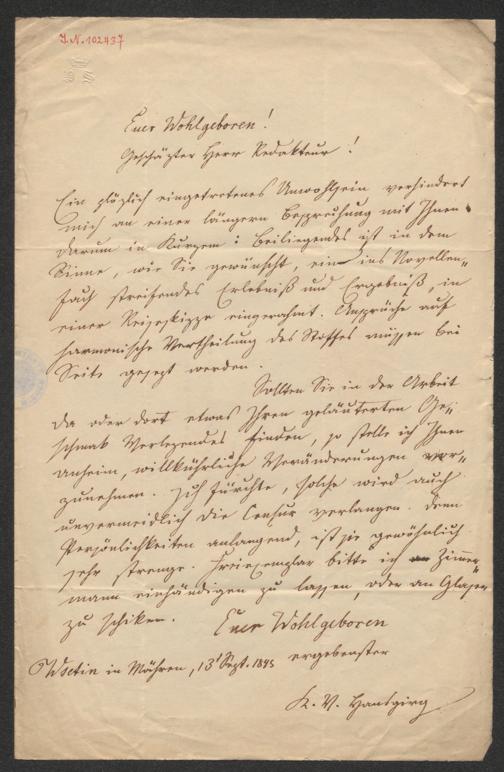 I.N. 102437
Euer Wohlgeboren!
Geschäzter Herr Redakteur!
Ein plözlich eingetretenes Unwohlsein verhindert
mich an einer längern Besprechung mit Ihnen.
Darum in Kurzem: Beiliegendes ist in dem
Sinne, wie Sie gewünscht, ein ins Novellen„
fach streifendes Erlebniß und Ergebniß, in
einer Reiseskizze eingerahmt. Ansprüche auf
harmonische Vertheilung des Stoffes müssen bei
Seite gesezt werden.
Sollten Sie in der Arbeit
da oder dort etwas Ihren geläuterten Ge„
schmak Verlezendes finden, so stelle ich Ihnen
anheim, willkührliche Veränderungen vor„
zunehmen. Ich fürchte, solche wird auch
unvermeidlich die Censur verlangen. Denn
Persönlichkeiten anlangend, ist sie gewöhnlich
sehr strenge. Freiexemplar bitte ich Zimmer„
mann einhändigen zu lassen, oder an Glaser
zu schiken.
Euer Wohlgeboren
Wsetin in Mähren, 13 Sept. 1845
ergebenster
K. V. Hansgirg